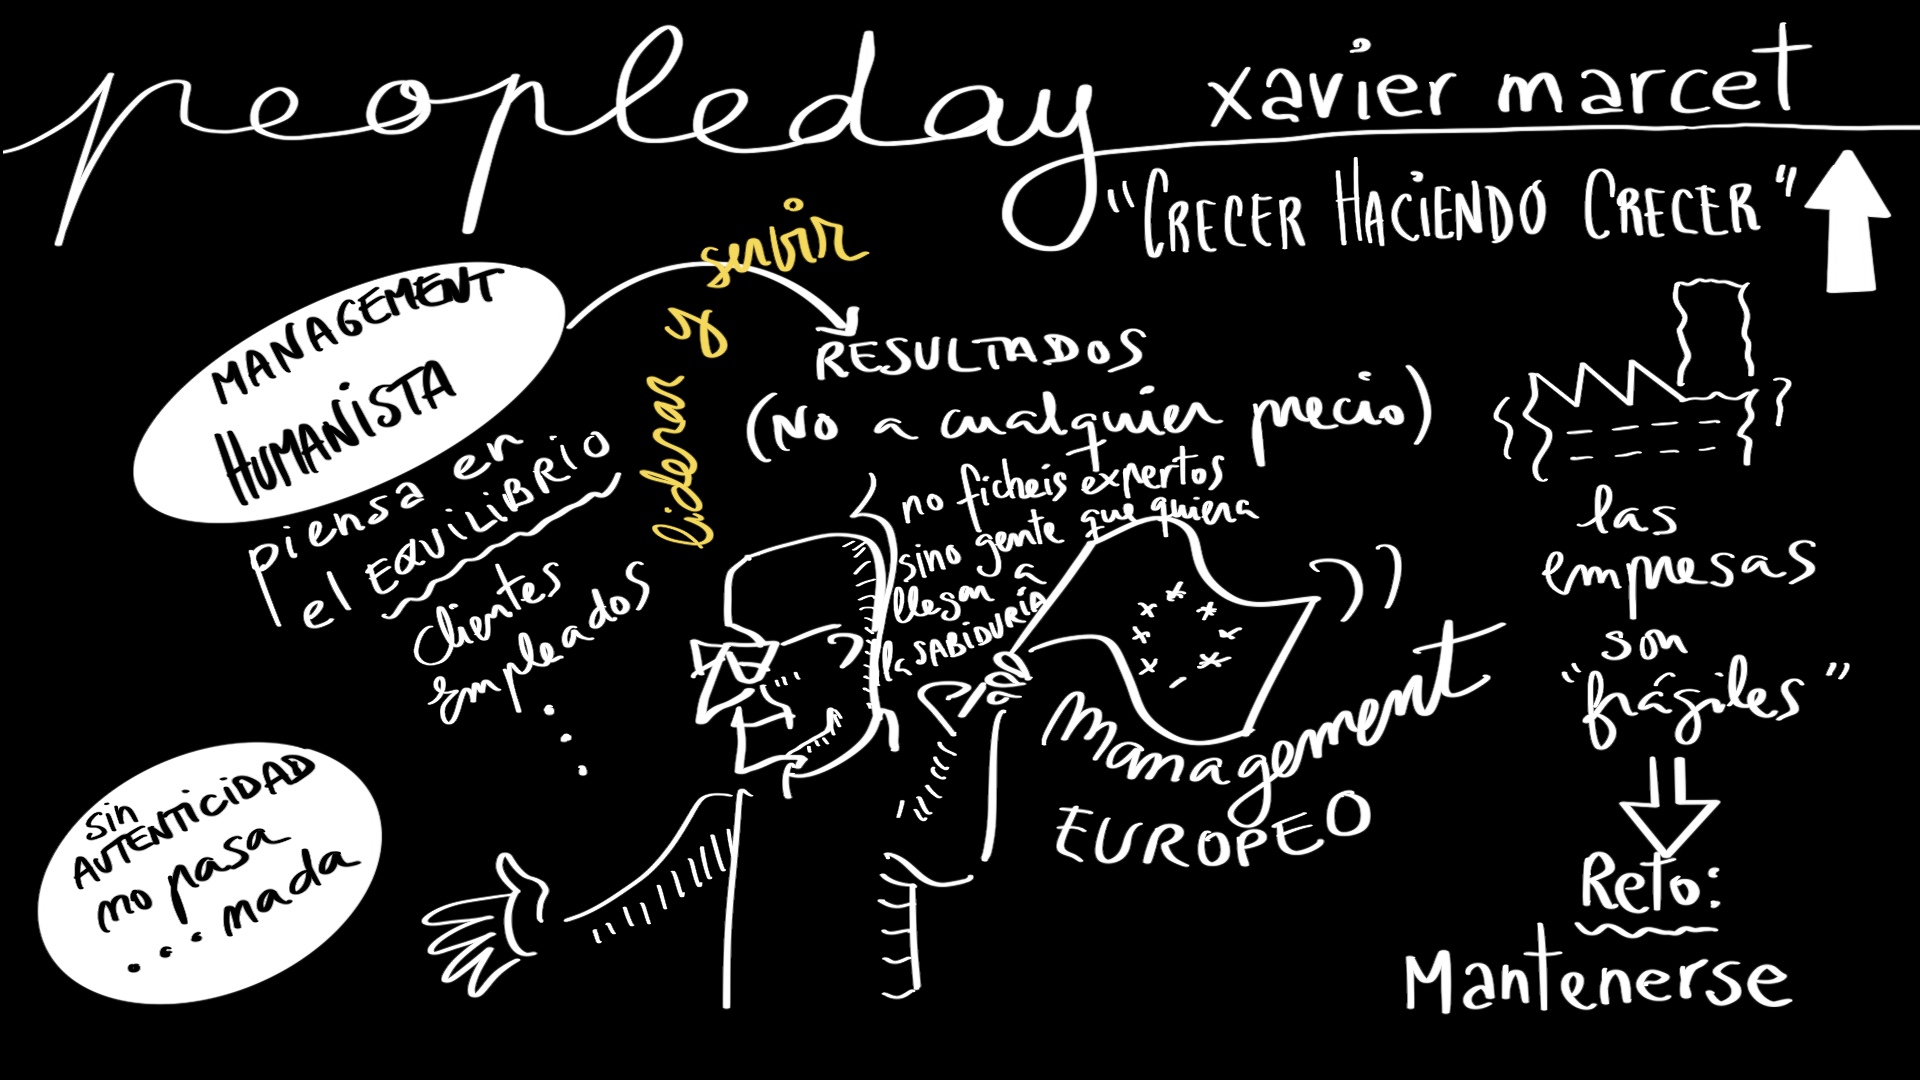 peopleday
xavier marcet
"CRECER HACIENDO CRECER"
MANAGEMENT
HUMANISTA
piensa en
el EQUILIBRIO
clientes
empleados
...
liderar y servir
RESULTADOS
(NO a cualquier precio)
no ficheis expertos
sino gente que quiera
llegar a
la SABIDURÍA
Management
EUROPEO
las
empresas
son
"frágiles"
Reto:
Mantenerse
sin
AUTENTICIDAD
no pasa
... nada